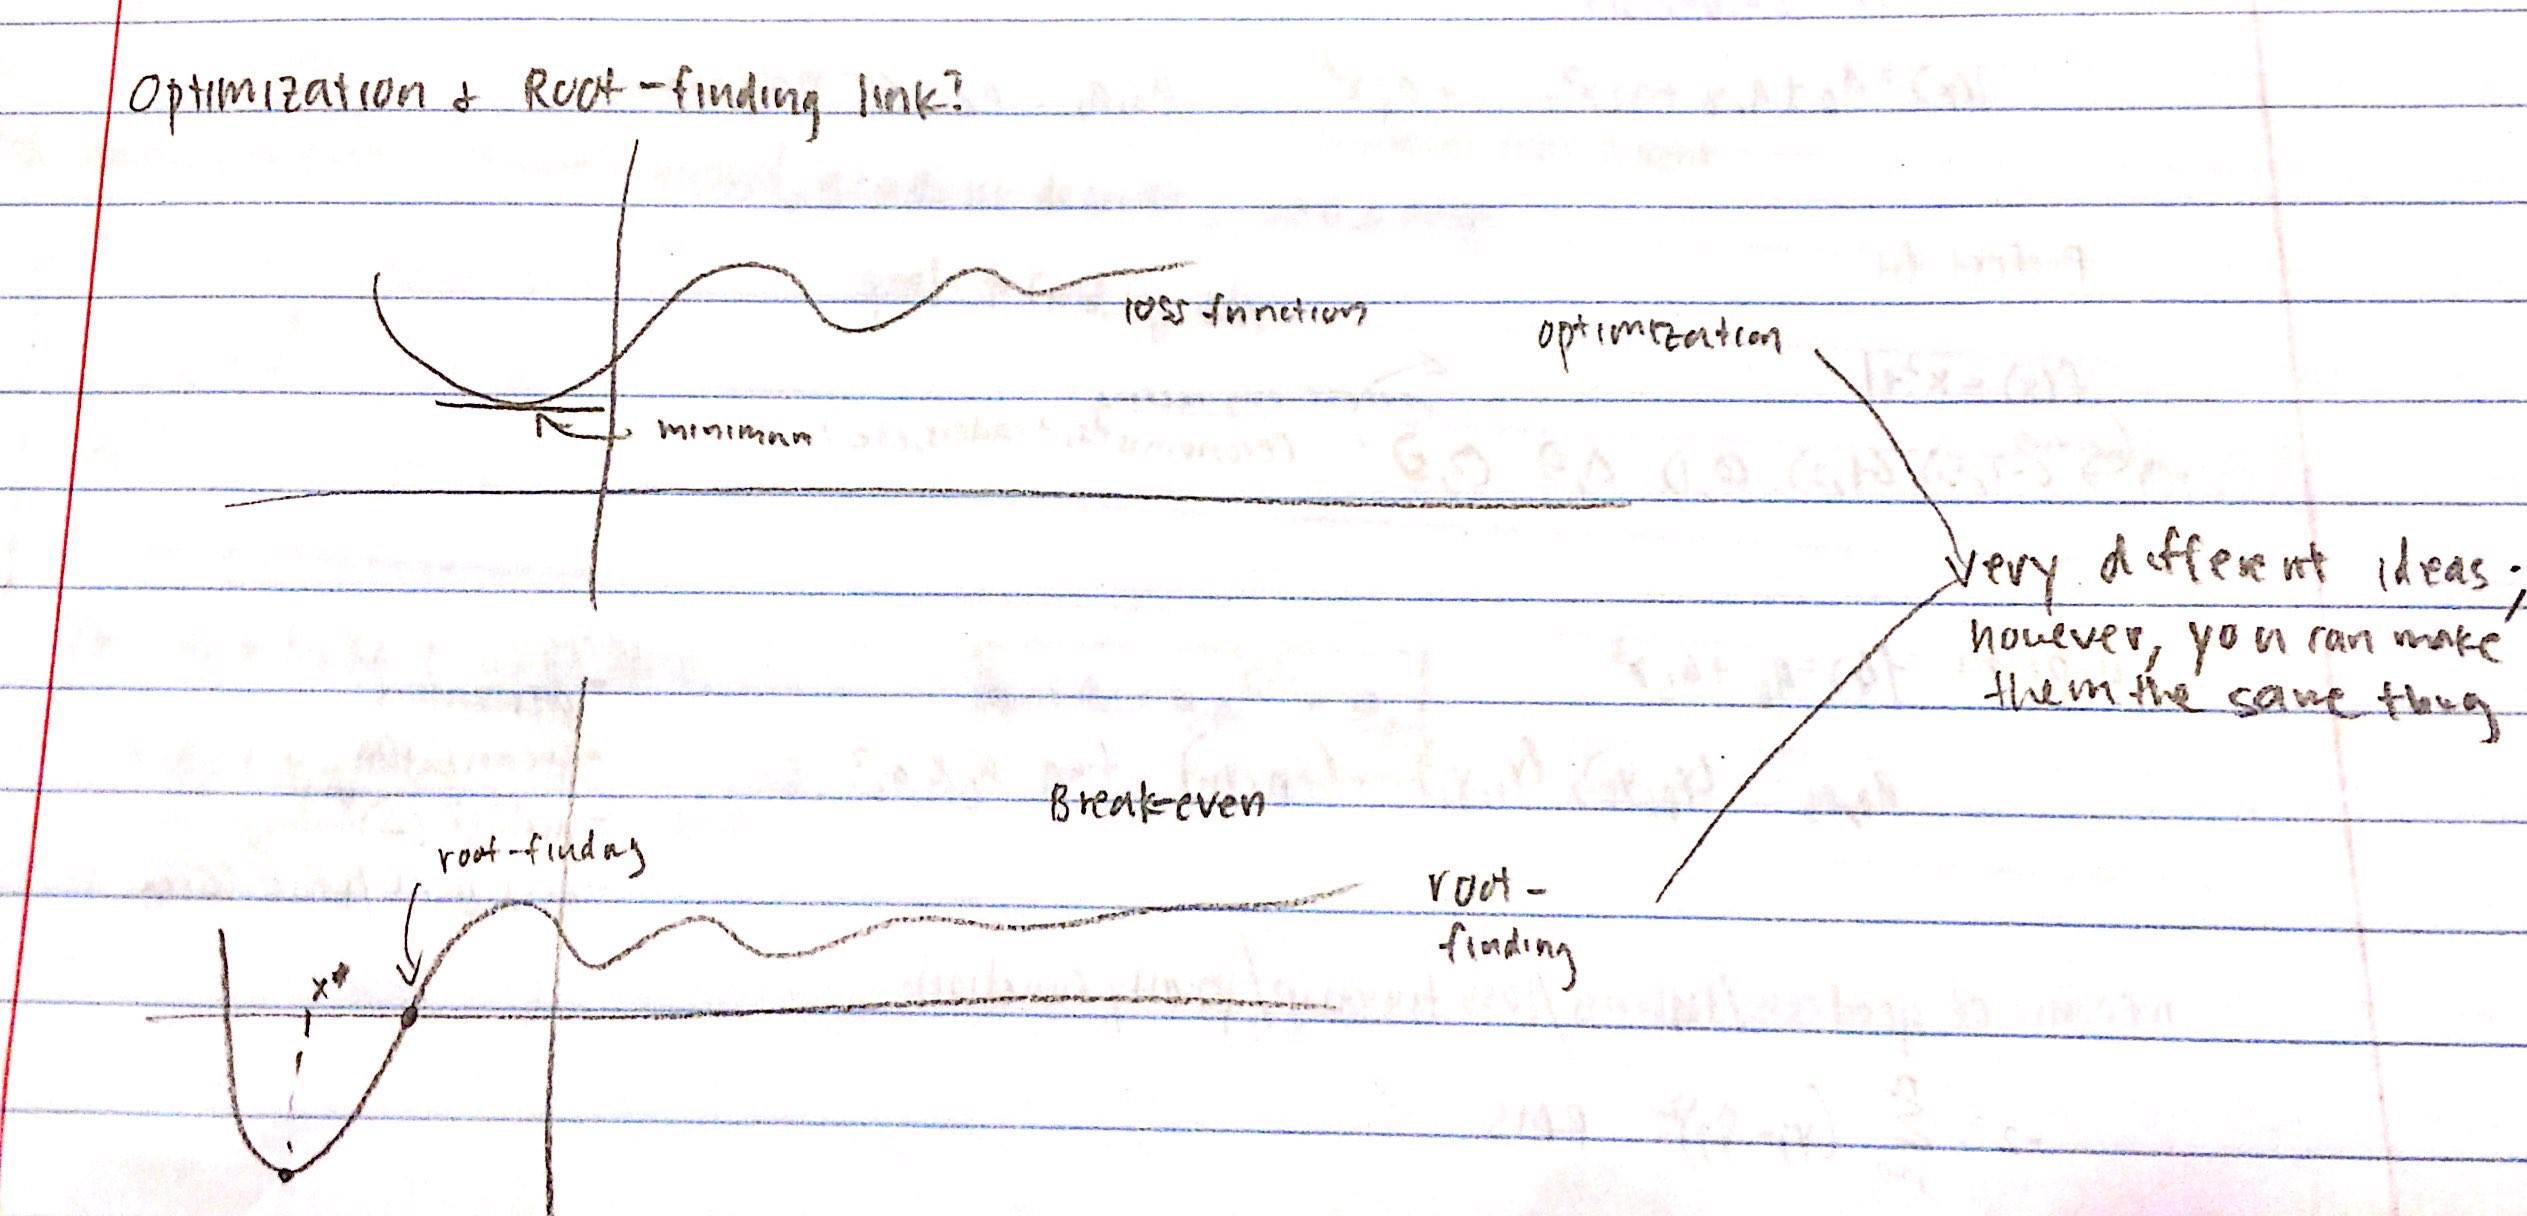 Optimization & Root-finding link?
loss function
optimization
minimum
very different ideas;
however, you can make
them the same thing
Break-even
root-finding
root-
finding
x*